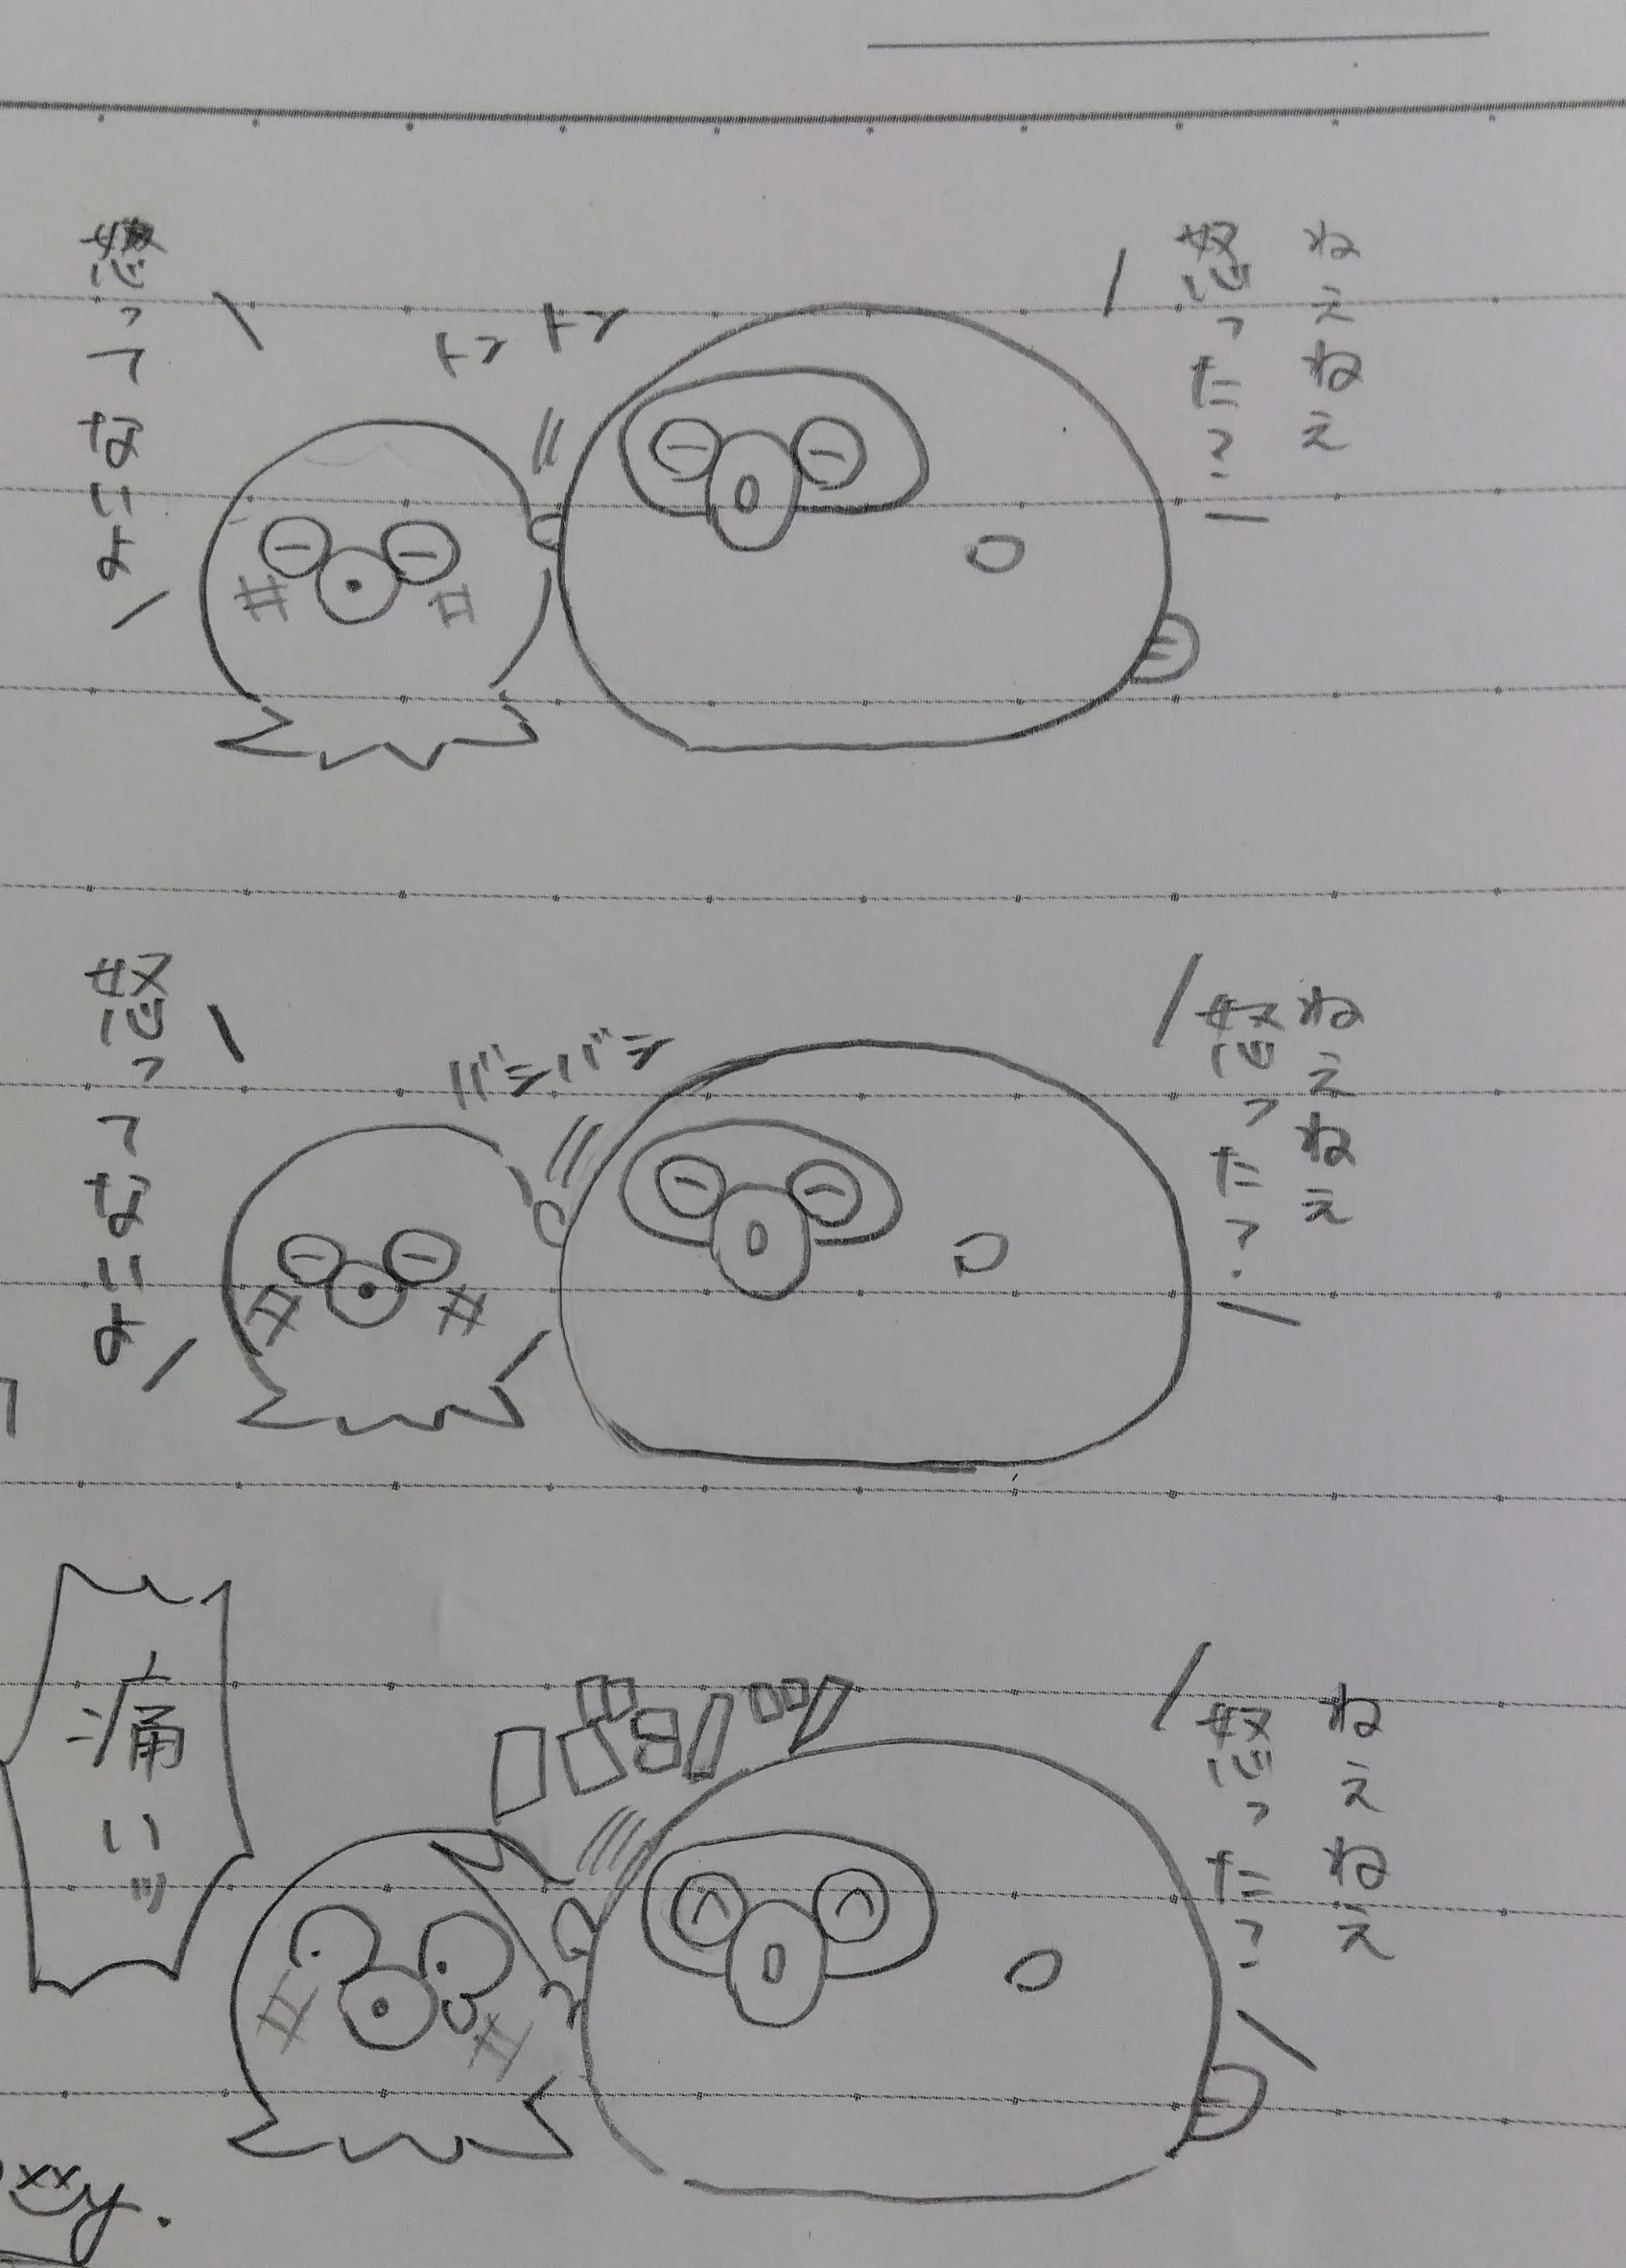 ねえねえ
怒った?
トントン
怒ってないよ
ねえねえ
怒った?
バシバシ
怒ってないよ
ねえねえ
怒った?
痛いッ
xxy.